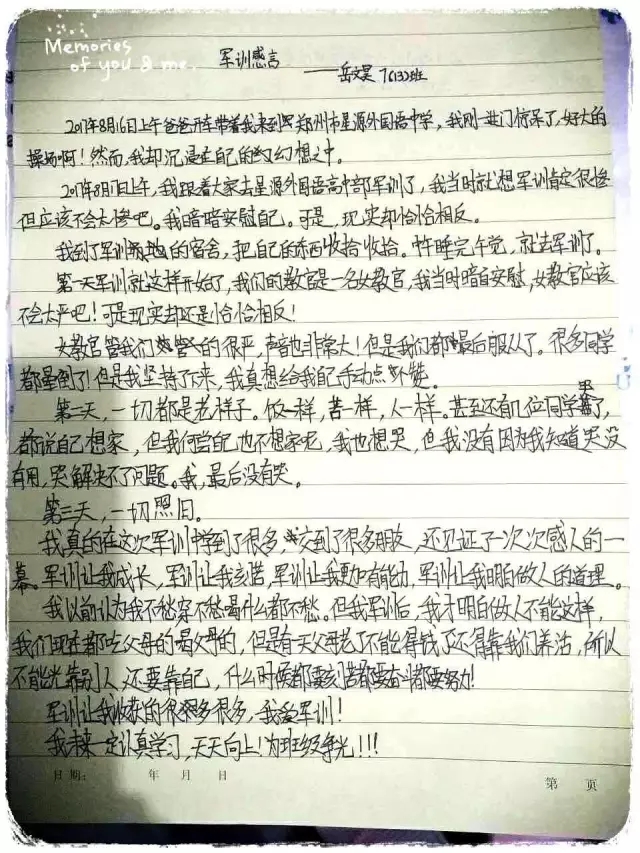 Memories
of you & me.
军训感言
——岳文昊 7(13)班
2017年8月16日上午爸爸开车带着我来到郑州市星源外国语中学，我刚一进门惊呆了，好大的
操场啊！然而，我却沉浸在自己的幻想之中。
2017年8月17日上午，我跟着大家去星源外国语高中部军训了，我当时就想军训肯定很惨
但应该不会太惨吧。我暗暗安慰自己。可是，现实却恰恰相反。
我到了军训的宿舍，把自己的东西收拾收拾。午睡完午觉，就去军训了。
第一天军训就这样开始了，我们的教官是一名女教官，我当时暗自安慰，女教官应该
不会太严吧！可是现实却还是恰恰相反！
女教官管我们管的很严，声音也非常大！但是我们都最后服从了。很多同学
都晕倒了！但是我坚持了下来，我真想给我自己手动点个赞。
第二天，一切都是老样子。饭一样，苦一样，人一样。甚至还有几位同学哭了，
都说自己想家，但我何尝自己也不想家呢，我也想哭，但我没有因为我知道哭没
有用，哭解决不了问题。我，最后没有哭。
第三天，一切照旧。
我真的在这次军训中学到了很多，交到了很多朋友，还见证了一次次感人的一
幕。军训让我成长，军训让我刻苦，军训让我更加有能力，军训让我明白做人的道理。
我以前认为我不愁穿不愁喝什么都不愁。但我军训后，我才明白做人不能这样，
我们现在都吃父母的喝父母的，但是有天父母老了不能得钱了还得靠我们养活，所以
不能光靠别人还要靠自己，什么时候都要刻苦都要奋斗都要努力！
军训让我收获的很多很多，我爱军训！
我未来一定认真学习，天天向上！为班级争光！！！
日期： 年 月 日 第 页